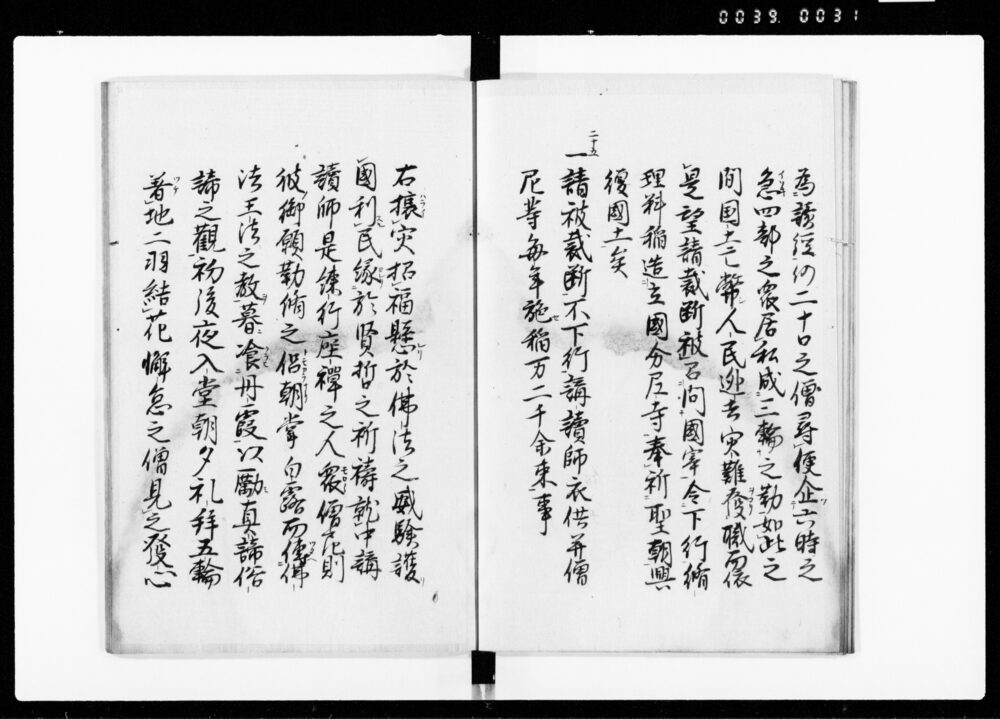 0039. 0031
為讀經切二十口之僧尋便企六時之
急四部之衆居私成三輪之勤如此之
間国土亡弊人民逃去災難發職而依
是望請裁断被召問國宰令下行脩
理料稲造立國分尼寺奉祈聖朝興
復國土矣
二十五
一請被裁断不下行講讀師衣供并僧
尼等毎年施稲万二千余束事
右攘災招福懸於佛法之威驗護
國利民縁於賢哲之祈禱就中講
讀師是練行座禪之人衆僧尼則
彼御願勤脩之侶朝甞白露而傳佛
法王法之教暮飡丹霞以勵真諦俗
諦之觀初後夜入堂朝夕礼拜五輪
著地二羽結花懈怠之僧見之發心